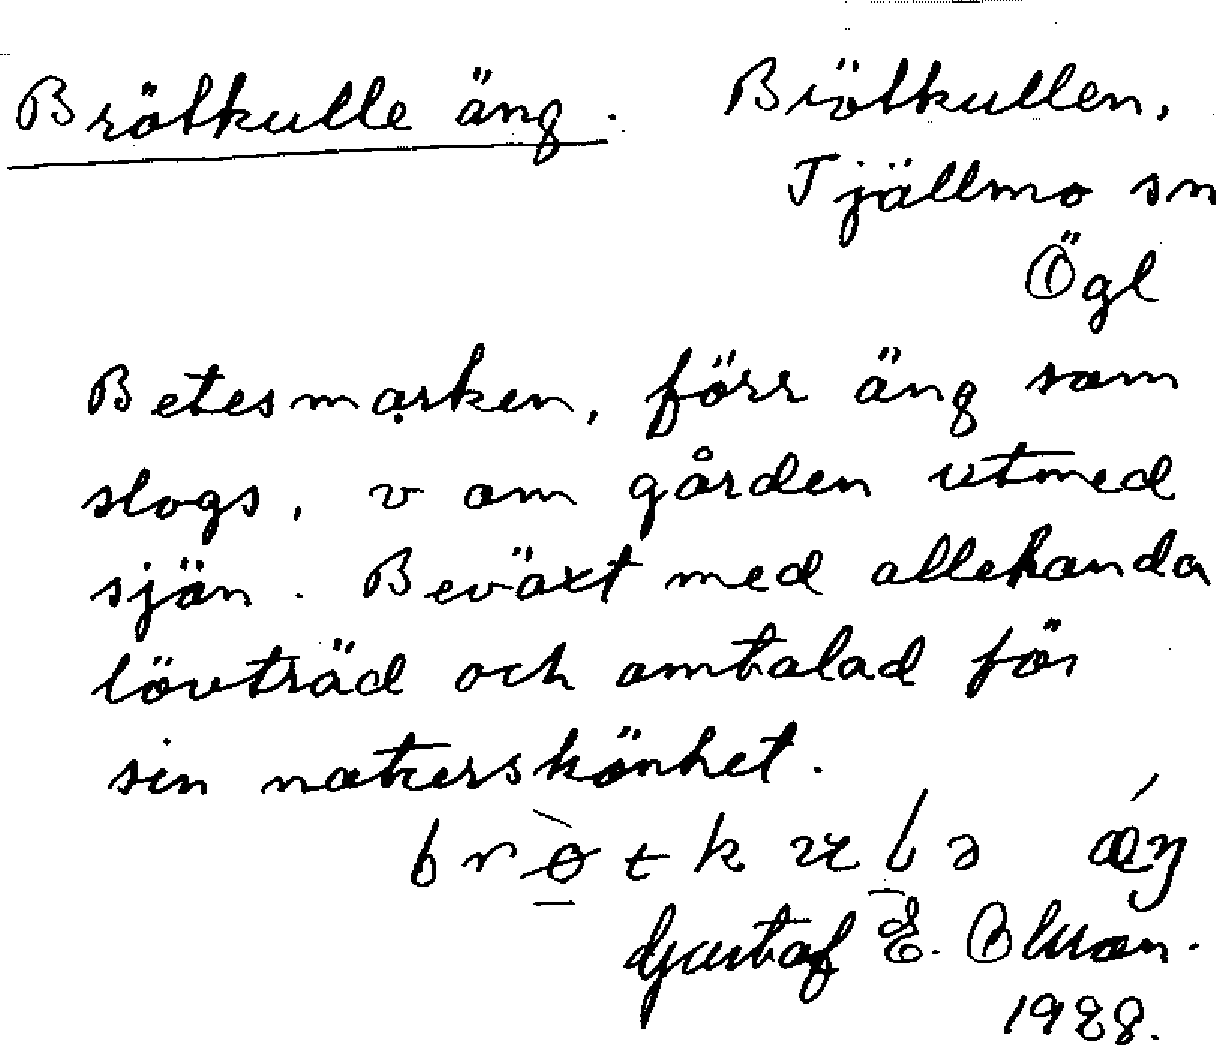 Brötkulle äng. Brötkullen,
Tjällmo sn
Ögl
Betesmarken, förr äng som
slogs, v om gården utmed
sjön. Beväxt med allehanda
lövträd och omtalad för
sin naturskönhet.
Gustaf E.
1928.